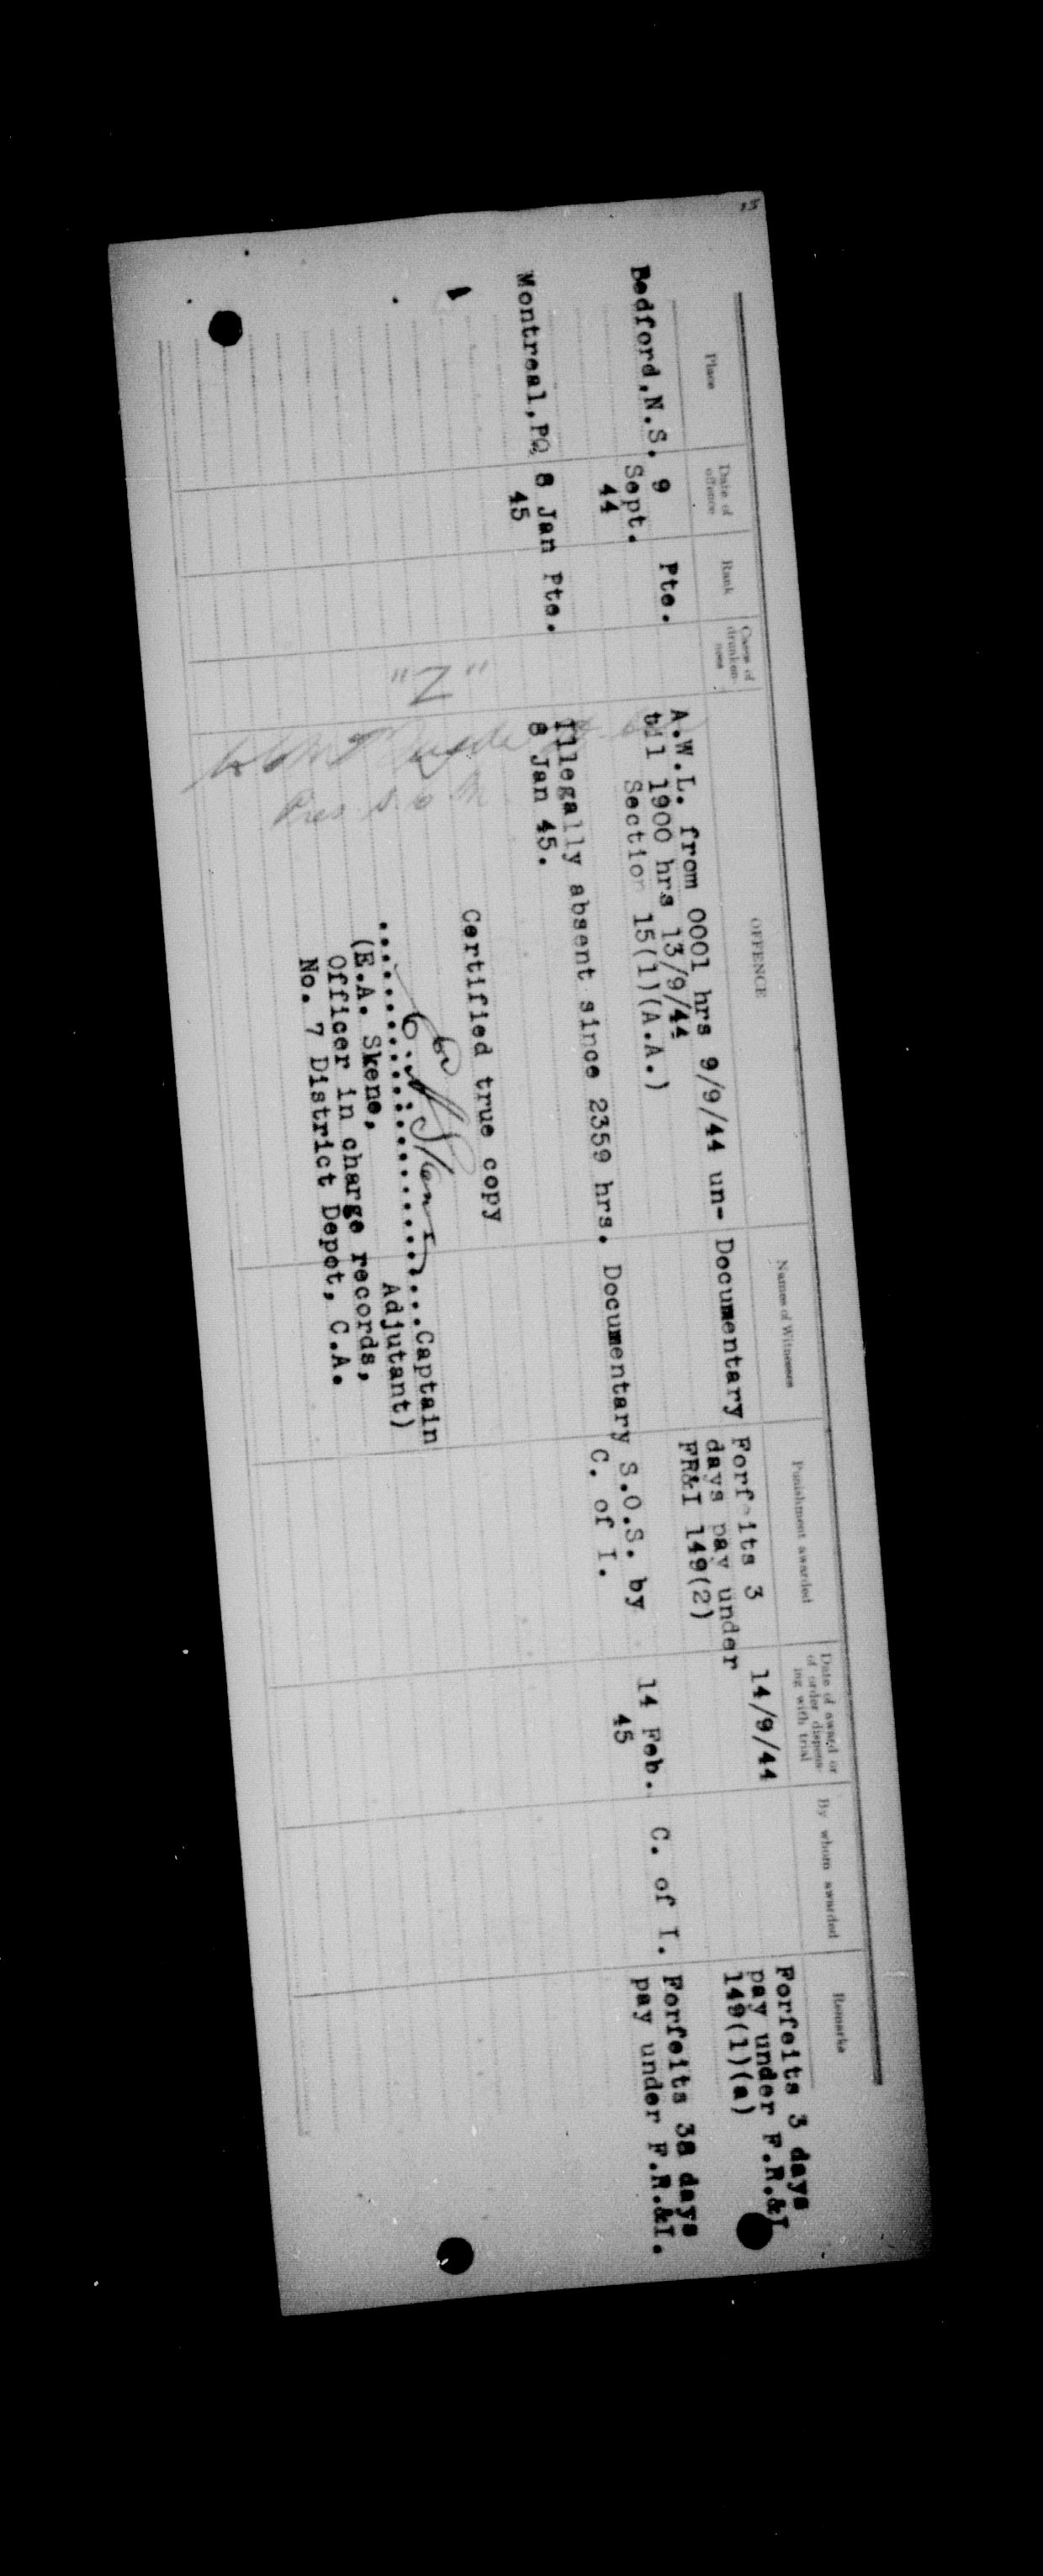 25
Place Date of offence Rank Cases of drunkenness OFFENCE Names of Witnesses Punishment awarded Date of award or of order dispensing with trial By whom awarded Remarks
Bedford,N.S. 9 Pte. A.W.L. from 0001 hrs 9/9/44 un- Documentary Forfeits 3 14/9/44 Forfeits 3 days
Sept. til 1900 hrs 13/9/44 days pay under pay under F.R.&I
44 Section 15(1)(A.A.) FR&I 149(2) 149(1)(a)
Montreal,PQ 8 Jan Pte. Illegally absent since 2359 hrs. Documentary S.O.S. by 14 Feb. C. of I. Forfeits 38 days
45 8 Jan 45. C. of I. 45 pay under F.R.&I.
Certified true copy
"Z"
E A Skene Captain
(E.A. Skene, Adjutant)
Officer in charge records,
No. 7 District Depot, C.A.